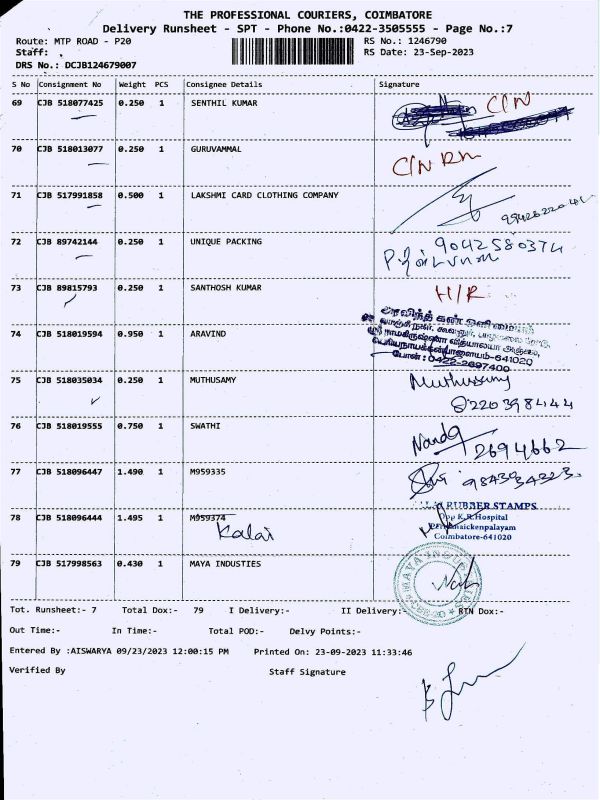 THE PROFESSIONAL COURIERS, COIMBATORE
Delivery Runsheet - SPT - Phone No.:0422-3505555 - Page No.:7
Route: MTP ROAD - P20 RS No.: 1246790
Staff: RS Date: 23-Sep-2023
DRS No.: DCJB124679007
S No Consignment No Weight PCS Consignee Details Signature
69 CJB 518077425 0.250 1 SENTHIL KUMAR C/N
70 CJB 518013077 0.250 1 GURUVAMMAL C/N RM
71 CJB 517991858 0.500 1 LAKSHMI CARD CLOTHING COMPANY
72 CJB 89742144 0.250 1 UNIQUE PACKING 9042580374
73 CJB 89815793 0.250 1 SANTHOSH KUMAR H/R
அரவிந்த் கண் ஒளிமையம்
ஸ்ரீ ராமகிருஷ்ணா வித்யாலயா அருகில்,
பெரியநாயக்கன்பாளையம்-641020
போன் : 0422-2697400
74 CJB 518019594 0.950 1 ARAVIND
75 CJB 518035034 0.250 1 MUTHUSAMY Muthusamy
8220398444
76 CJB 518019555 0.750 1 SWATHI 2694662
77 CJB 518096447 1.490 1 M959335
78 CJB 518096444 1.495 1 M959374
Kalai
RUBBER STAMPS
Opp K.R.Hospital
Coimbatore-641020
79 CJB 517998563 0.430 1 MAYA INDUSTIES
MAYA INDUSTRIES
Tot. Runsheet:- 7 Total Dox:- 79 I Delivery:- II Delivery:- RTN Dox:-
Out Time:- In Time:- Total POD:- Delvy Points:-
Entered By :AISWARYA 09/23/2023 12:00:15 PM Printed On: 23-09-2023 11:33:46
Verified By Staff Signature